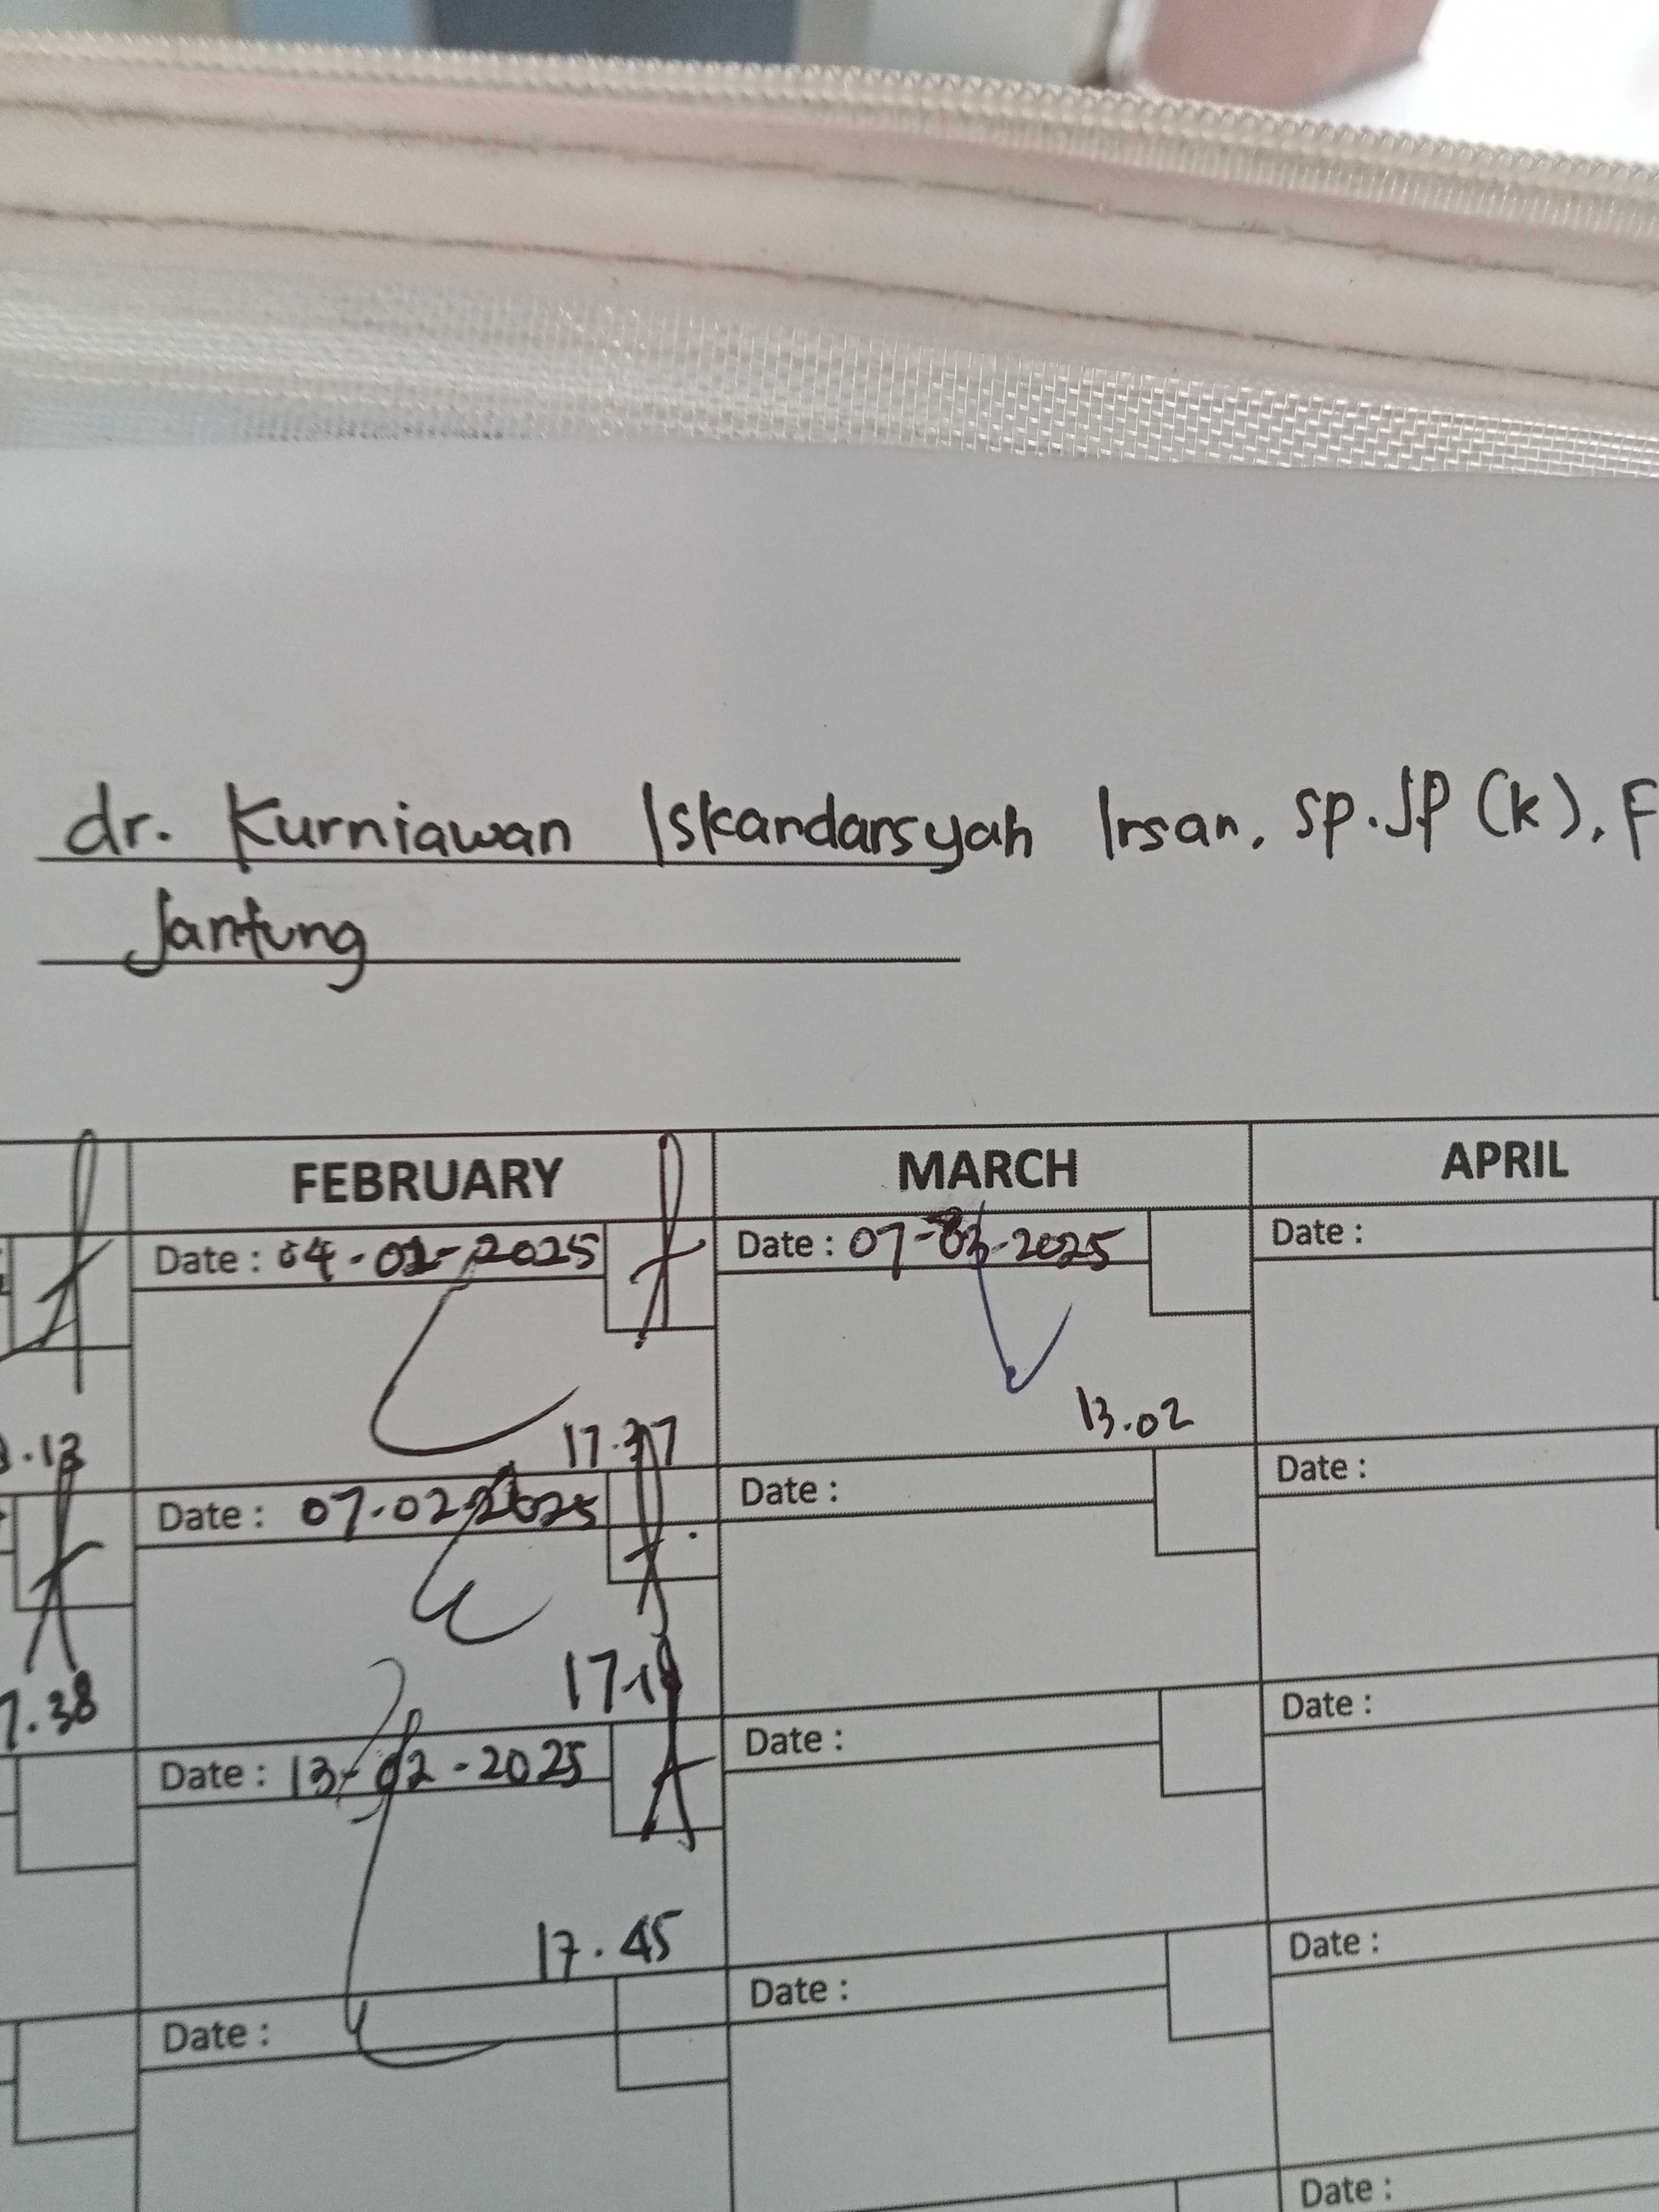 dr. Kurniawan Iskandarsyah Irsan, Sp.JP (K), F
Jantung
FEBRUARY MARCH APRIL
Date : 04-02-2025 Date : 07-03-2025 Date :
.13 17.37 13.02
Date : 07-02-2025 Date : Date :
.38 17.19
Date : 13-02-2025 Date : Date :
17.45
Date : Date : Date :
Date :